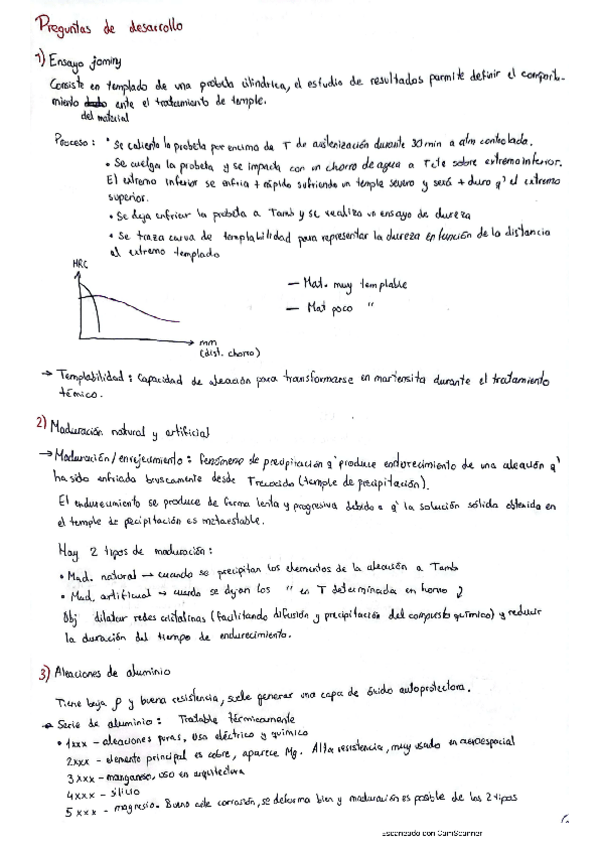 Preguntas de desarrollo
1) Ensayo jominy
Consiste en templado de una probeta cilíndrica, el estudio de resultados permite definir el comporta-
miento ante el tratamiento de temple.
del material
Proceso: • Se calienta la probeta por encima de T de austenización durante 30 min a atm controlada.
• Se cuelga la probeta y se impacta con un chorro de agua a T cte sobre extremo inferior.
El extremo inferior se enfria + rápido sufriendo un temple severo y será + duro q' el extremo
superior.
• Se deja enfriar la probeta a Tamb y se realiza un ensayo de dureza
• Se traza curva de templabilidad para representar la dureza en función de la distancia
al extremo templado
HRC
— Mat. muy templable
— Mat poco "
mm
(dist. chorro)
→ Templabilidad: Capacidad de aleación para transformarse en martensita durante el tratamiento
térmico.
2) Maduración natural y artificial
→ Maduración/envejecimiento: fenómeno de precipitación q' produce endurecimiento de una aleación q'
ha sido enfriada bruscamente desde Trecocido (temple de precipitación).
El endurecimiento se produce de forma lenta y progresiva debido a q' la solución sólida obtenida en
el temple de precipitación es metaestable.
Hay 2 tipos de maduración:
• Mad. natural → cuando se precipitan los elementos de la aleación a Tamb
• Mad. artificial → cuando se dejan los " en T determinada en horno
Obj dilatar redes cristalinas (facilitando difusión y precipitación del compuesto químico) y reducir
la duración del tiempo de endurecimiento.
3) Aleaciones de aluminio
Tiene baja ρ y buena resistencia, suele generar una capa de óxido autoprotectora.
→ Serie de aluminio: Tratable térmicamente
• 1xxx - aleaciones puras, uso eléctrico y químico
2xxx - elemento principal es cobre, aparece Mg. Alta resistencia, muy usado en aeroespacial
3xxx - manganeso, uso en arquitectura
4xxx - silicio
5xxx - magnesio. Buena ante corrosión, se deforma bien y maduración es posible de los 2 tipos
Escaneado con CamScanner